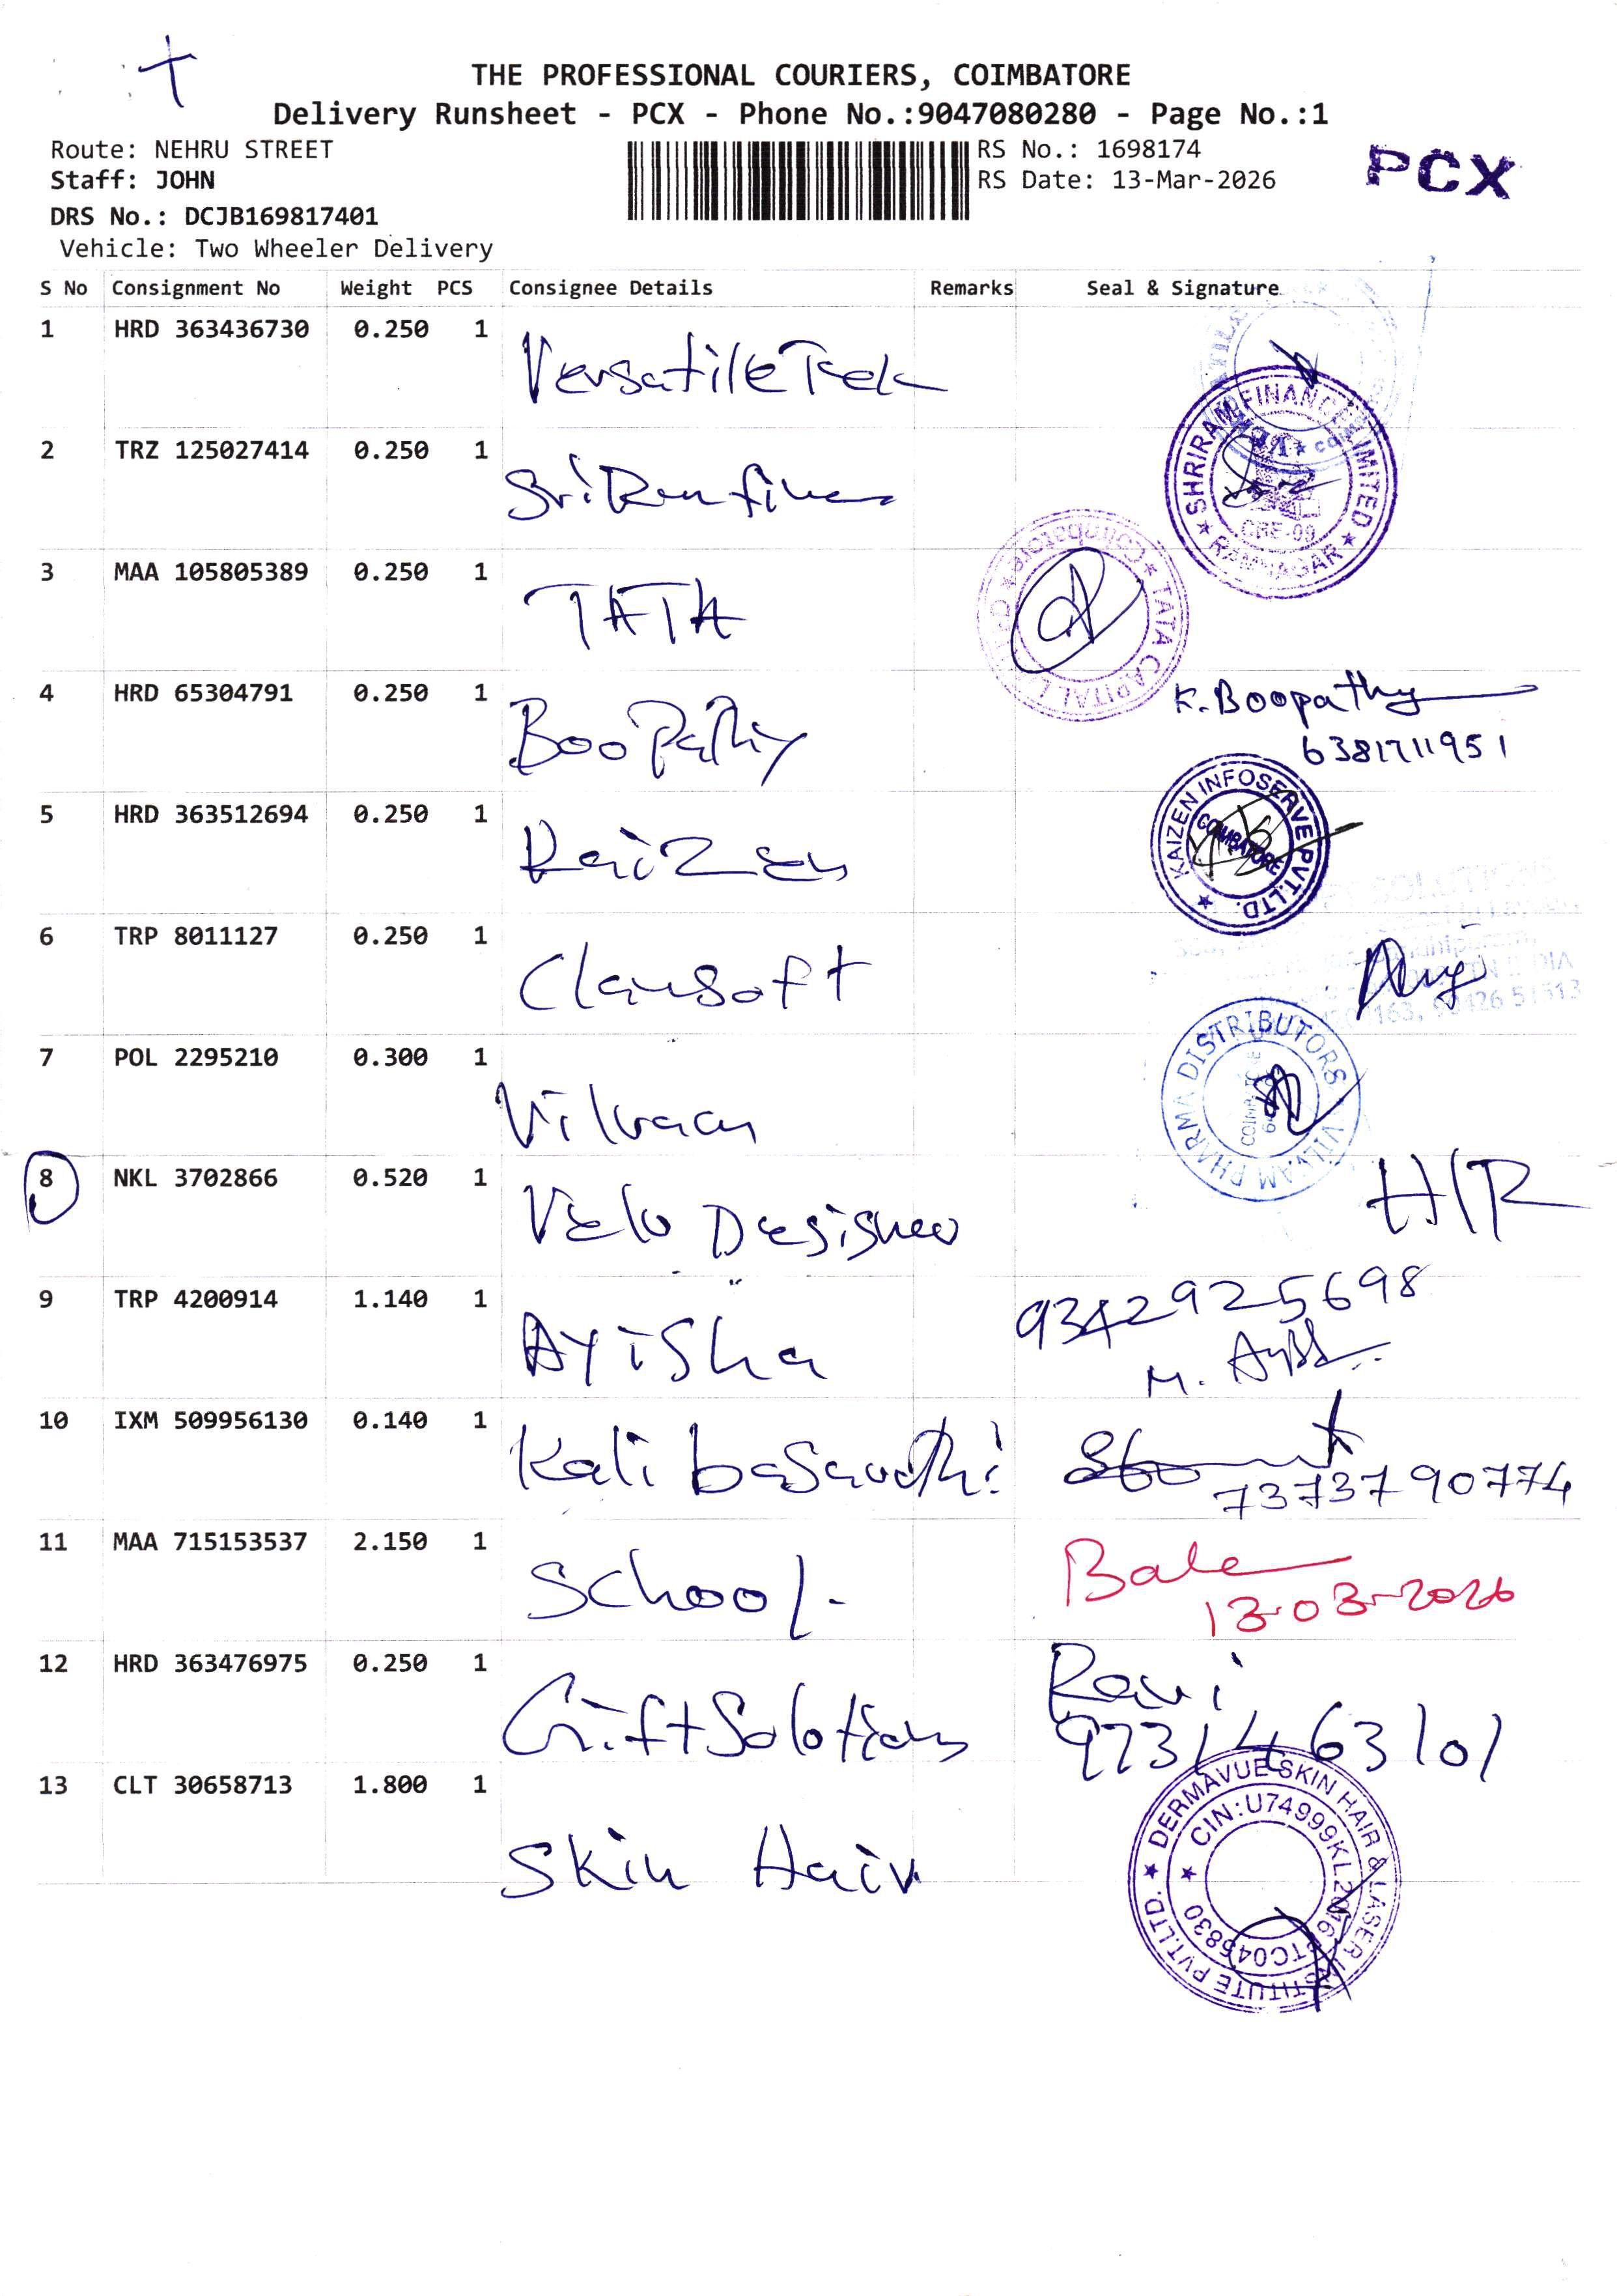 THE PROFESSIONAL COURIERS, COIMBATORE
Delivery Runsheet - PCX - Phone No.:9047080280 - Page No.:1
Route: NEHRU STREET
Staff: JOHN
DRS No.: DCJB169817401
Vehicle: Two Wheeler Delivery
RS No.: 1698174
RS Date: 13-Mar-2026
PCX
S No Consignment No Weight PCS Consignee Details Remarks Seal & Signature
1 HRD 363436730 0.250 1 Versatile Tek
2 TRZ 125027414 0.250 1 SriRam
SHRIRAM FINANCE LIMITED ★ RAMNAGAR ★
3 MAA 105805389 0.250 1 TATA
★ TATA CAPITAL
Coimbatore ★
4 HRD 65304791 0.250 1 BooPathy K. Boopathy
6381711951
5 HRD 363512694 0.250 1 Kaizen
KAIZEN INFOSERVE PVT.LTD. ★
COIMBATORE
6 TRP 8011127 0.250 1 Clansoft
7 POL 2295210 0.300 1
VILVAM PHARMA DISTRIBUTORS
8 NKL 3702866 0.520 1 Velo Designer H/R
9 TRP 4200914 1.140 1 AYiSha 9342925698
M.
10 IXM 509956130 0.140 1 Kali 7373790774
11 MAA 715153537 2.150 1 School. Bala
13-03-2026
12 HRD 363476975 0.250 1 Gift Solotions Ravi
9731463101
13 CLT 30658713 1.800 1 Skin Hair
★ DERMAVUE SKIN HAIR & LASER INSTITUTE PVT.LTD.
★ CIN:U74999KL2016PTC045830